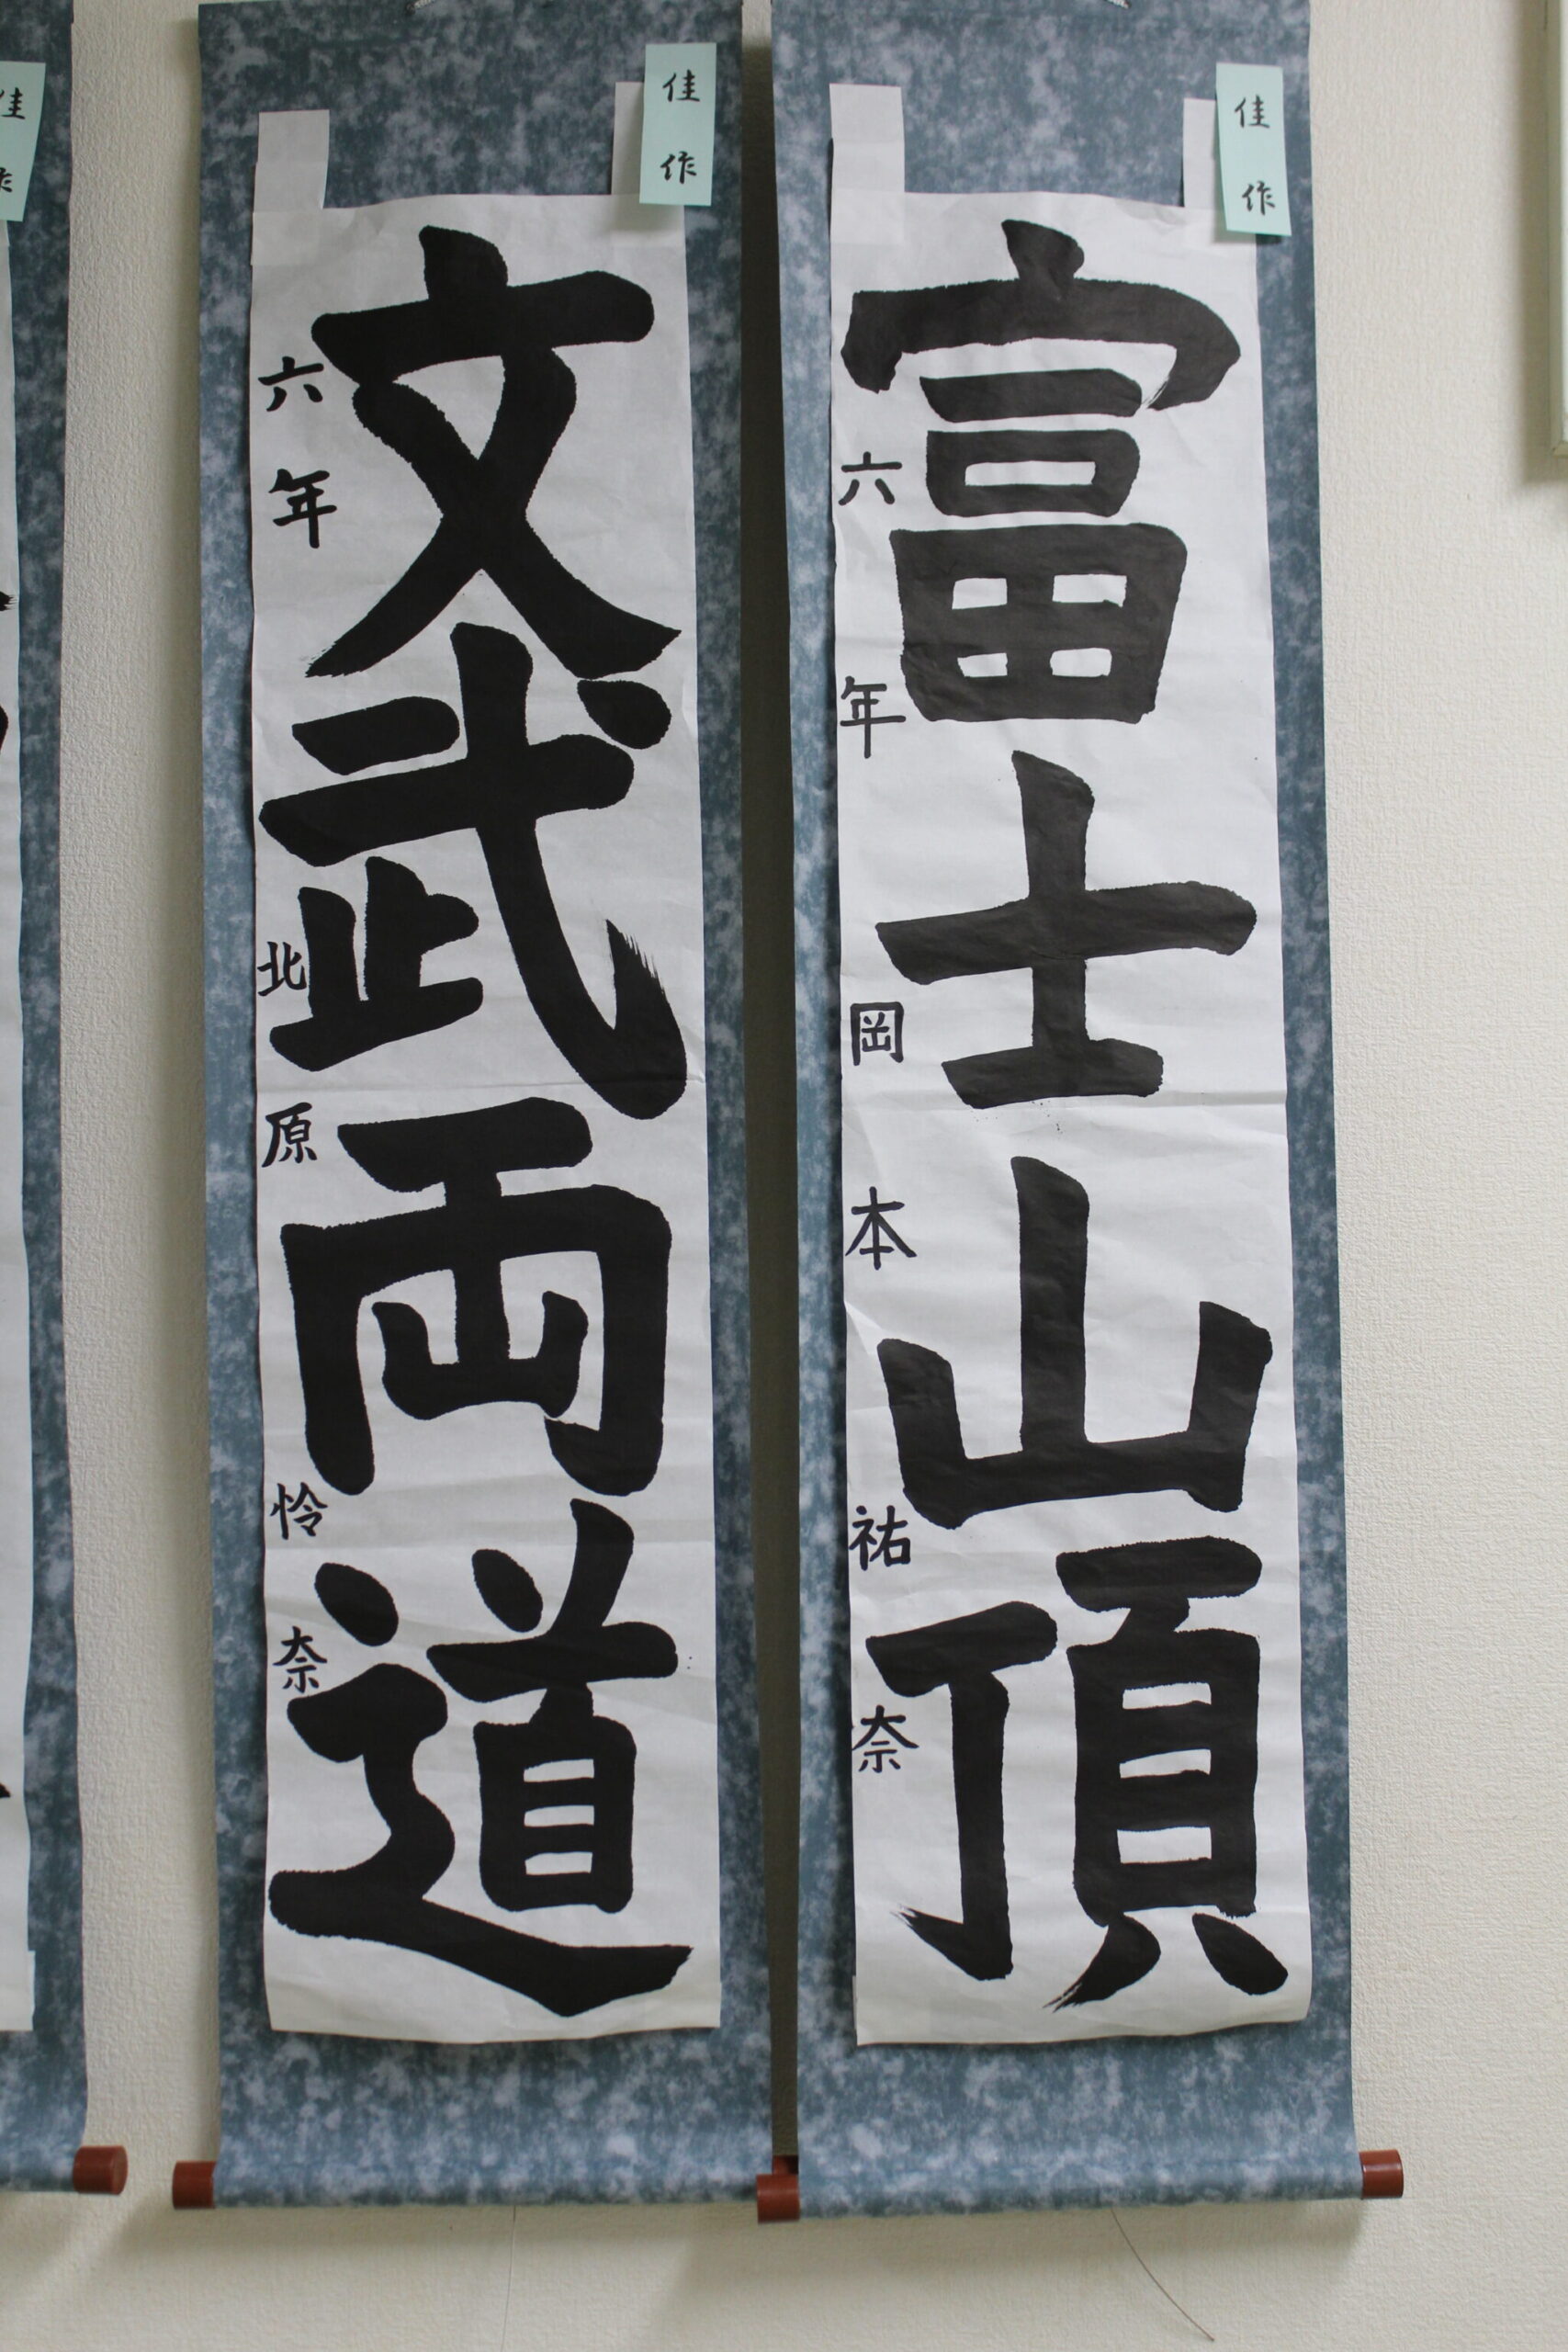 佳作
富士山頂
六年 岡本祐奈
佳作
文武両道
六年 北原怜奈
佳作